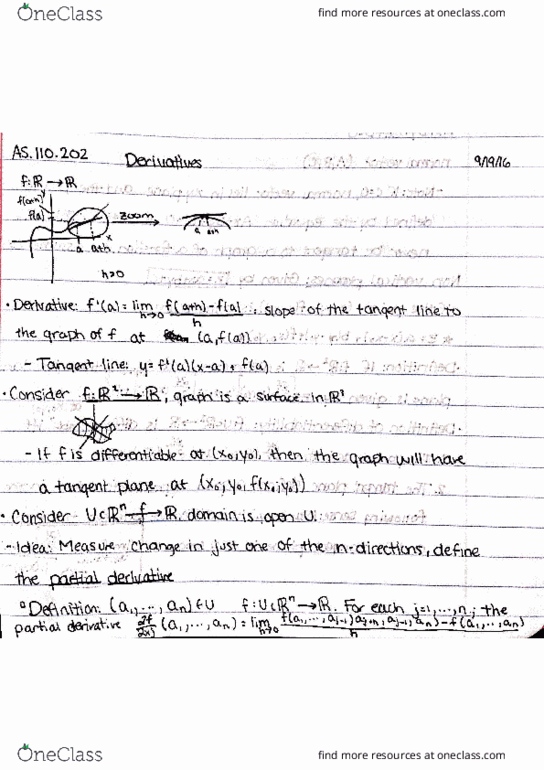 OneClass
find more resources at oneclass.com
AS.110.202 Derivatives 9/19/16
f: ℝ → ℝ
f(a+h)
f(a)
zoom
a a+h x
a a+h
h>0
• Derivative: f'(a) = lim h→0 f(a+h)-f(a) / h ; slope of the tangent line to
the graph of f at (a, f(a))
- Tangent line: y = f'(a)(x-a) + f(a)
• Consider f: ℝ² → ℝ, graph is a surface in ℝ³
- If f is differentiable at (x₀,y₀), then the graph will have
a tangent plane at (x₀, y₀, f(x₀,y₀))
• Consider U⊂ℝⁿ f→ ℝ, domain is open U.
- Idea: Measure change in just one of the n-directions, define
the partial derivative
° Definition: (a₁,..., aₙ) ∈ U f: U⊂ℝⁿ → ℝ. For each j=1,...,n, the
partial derivative ∂f/∂xj (a₁,..., aₙ) = lim h→0 f(a₁,..., aj-1, aj+h, aj+1, aₙ) - f(a₁,..., aₙ) / h
OneClass
find more resources at oneclass.com